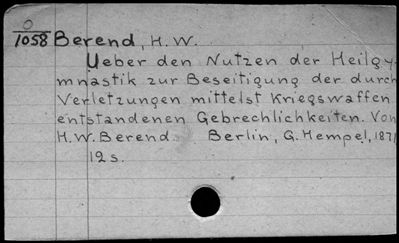 0
1058 Berend, H. W.
Ueber den Nutzen der Heilgy-
mnastik zur Beseitigung der durch
Verletzungen mittelst Kriegswaffen
entstandenen Gebrechlichkeiten. Von
H. W. Berend. Berlin, G. Hempel, 1871
12 s.